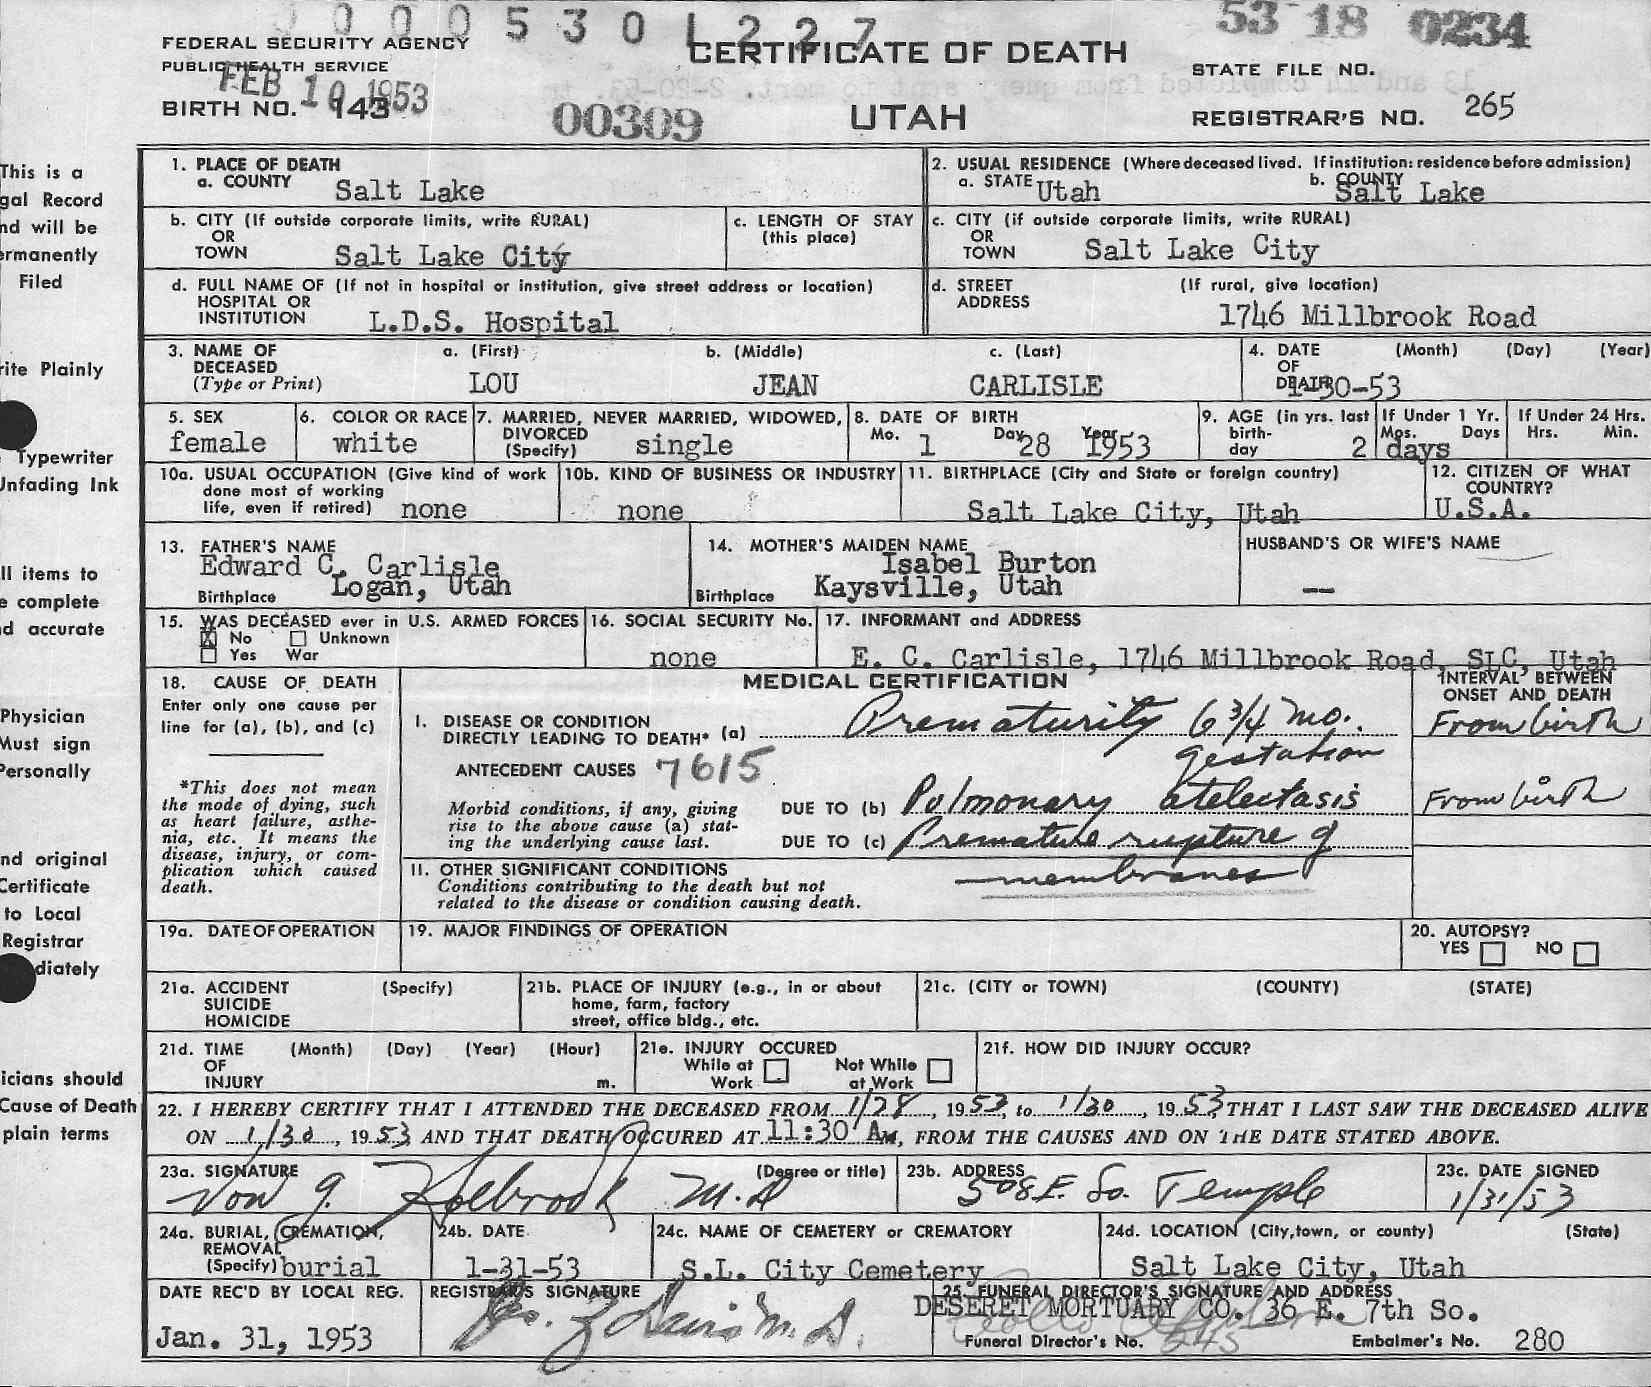 0 0 0 0 5 3 0 1 2 2 7
53 18 0234
FEDERAL SECURITY AGENCY
PUBLIC HEALTH SERVICE
CERTIFICATE OF DEATH
STATE FILE NO.
FEB 10 1953
BIRTH NO. 143
00309
UTAH
REGISTRAR'S NO. 265
This is a
gal Record
nd will be
ermanently
Filed
rite Plainly
Typewriter
Unfading Ink
ll items to
e complete
nd accurate
Physician
Must sign
Personally
nd original
Certificate
to Local
Registrar
diately
icians should
Cause of Death
plain terms
1. PLACE OF DEATH
a. COUNTY Salt Lake
2. USUAL RESIDENCE (Where deceased lived. If institution: residence before admission)
a. STATE Utah b. COUNTY Salt Lake
b. CITY (If outside corporate limits, write RURAL)
OR
TOWN Salt Lake City
c. LENGTH OF STAY
(this place)
c. CITY (if outside corporate limits, write RURAL)
OR
TOWN Salt Lake City
d. FULL NAME OF (If not in hospital or institution, give street address or location)
HOSPITAL OR
INSTITUTION L.D.S. Hospital
d. STREET (If rural, give location)
ADDRESS
1746 Millbrook Road
3. NAME OF DECEASED (Type or Print)
a. (First) b. (Middle) c. (Last)
LOU JEAN CARLISLE
4. DATE (Month) (Day) (Year)
OF
DEATH 1-30-53
5. SEX
female
6. COLOR OR RACE
white
7. MARRIED, NEVER MARRIED, WIDOWED,
DIVORCED
(Specify) single
8. DATE OF BIRTH
Mo. 1 Day 28 Year 1953
9. AGE (in yrs. last
birth-
day 2 days
If Under 1 Yr.
Mos. Days
If Under 24 Hrs.
Hrs. Min.
10a. USUAL OCCUPATION (Give kind of work
done most of working
life, even if retired) none
10b. KIND OF BUSINESS OR INDUSTRY
none
11. BIRTHPLACE (City and State or foreign country)
Salt Lake City, Utah
12. CITIZEN OF WHAT
COUNTRY?
U.S.A.
13. FATHER'S NAME
Edward C. Carlisle
Birthplace Logan, Utah
14. MOTHER'S MAIDEN NAME
Isabel Burton
Birthplace Kaysville, Utah
HUSBAND'S OR WIFE'S NAME
--
15. WAS DECEASED ever in U.S. ARMED FORCES
X No Unknown
Yes War
16. SOCIAL SECURITY No.
none
17. INFORMANT and ADDRESS
E. C. Carlisle, 1746 Millbrook Road, SLC, Utah
18. CAUSE OF DEATH
Enter only one cause per
line for (a), (b), and (c)
*This does not mean
the mode of dying, such
as heart failure, asthe-
nia, etc. It means the
disease, injury, or com-
plication which caused
death.
MEDICAL CERTIFICATION
INTERVAL BETWEEN
ONSET AND DEATH
I. DISEASE OR CONDITION
DIRECTLY LEADING TO DEATH* (a) Prematurity 6 3/4 mo. From birth
gestation
ANTECEDENT CAUSES 7615
Morbid conditions, if any, giving
rise to the above cause (a) stat-
ing the underlying cause last.
DUE TO (b) Pulmonary atelectasis From birth
DUE TO (c) Premature rupture of
membranes
11. OTHER SIGNIFICANT CONDITIONS
Conditions contributing to the death but not
related to the disease or condition causing death.
19a. DATE OF OPERATION
19. MAJOR FINDINGS OF OPERATION
20. AUTOPSY?
YES NO
21a. ACCIDENT (Specify)
SUICIDE
HOMICIDE
21b. PLACE OF INJURY (e.g., in or about
home, farm, factory
street, office bldg., etc.
21c. (CITY or TOWN) (COUNTY) (STATE)
21d. TIME (Month) (Day) (Year) (Hour)
OF
INJURY m.
21e. INJURY OCCURED
While at Work Not While at Work
21f. HOW DID INJURY OCCUR?
22. I HEREBY CERTIFY THAT I ATTENDED THE DECEASED FROM 1/28, 1953, to 1/30, 1953 THAT I LAST SAW THE DECEASED ALIVE
ON 1/30, 1953 AND THAT DEATH OCCURED AT 11:30 Am, FROM THE CAUSES AND ON THE DATE STATED ABOVE.
23a. SIGNATURE (Degree or title)
Von G. Holbrook M.D
23b. ADDRESS
508 E. So. Temple
23c. DATE SIGNED
1/31/53
24a. BURIAL, CREMATION,
REMOVAL
(Specify) burial
24b. DATE
1-31-53
24c. NAME OF CEMETERY or CREMATORY
S.L. City Cemetery
24d. LOCATION (City, town, or county) (State)
Salt Lake City, Utah
DATE REC'D BY LOCAL REG.
Jan. 31, 1953
REGISTRAR'S SIGNATURE
Davis M.D.
25. FUNERAL DIRECTOR'S SIGNATURE AND ADDRESS
DESERET MORTUARY CO. 36 E. 7th So.
Funeral Director's No.
Embalmer's No. 280